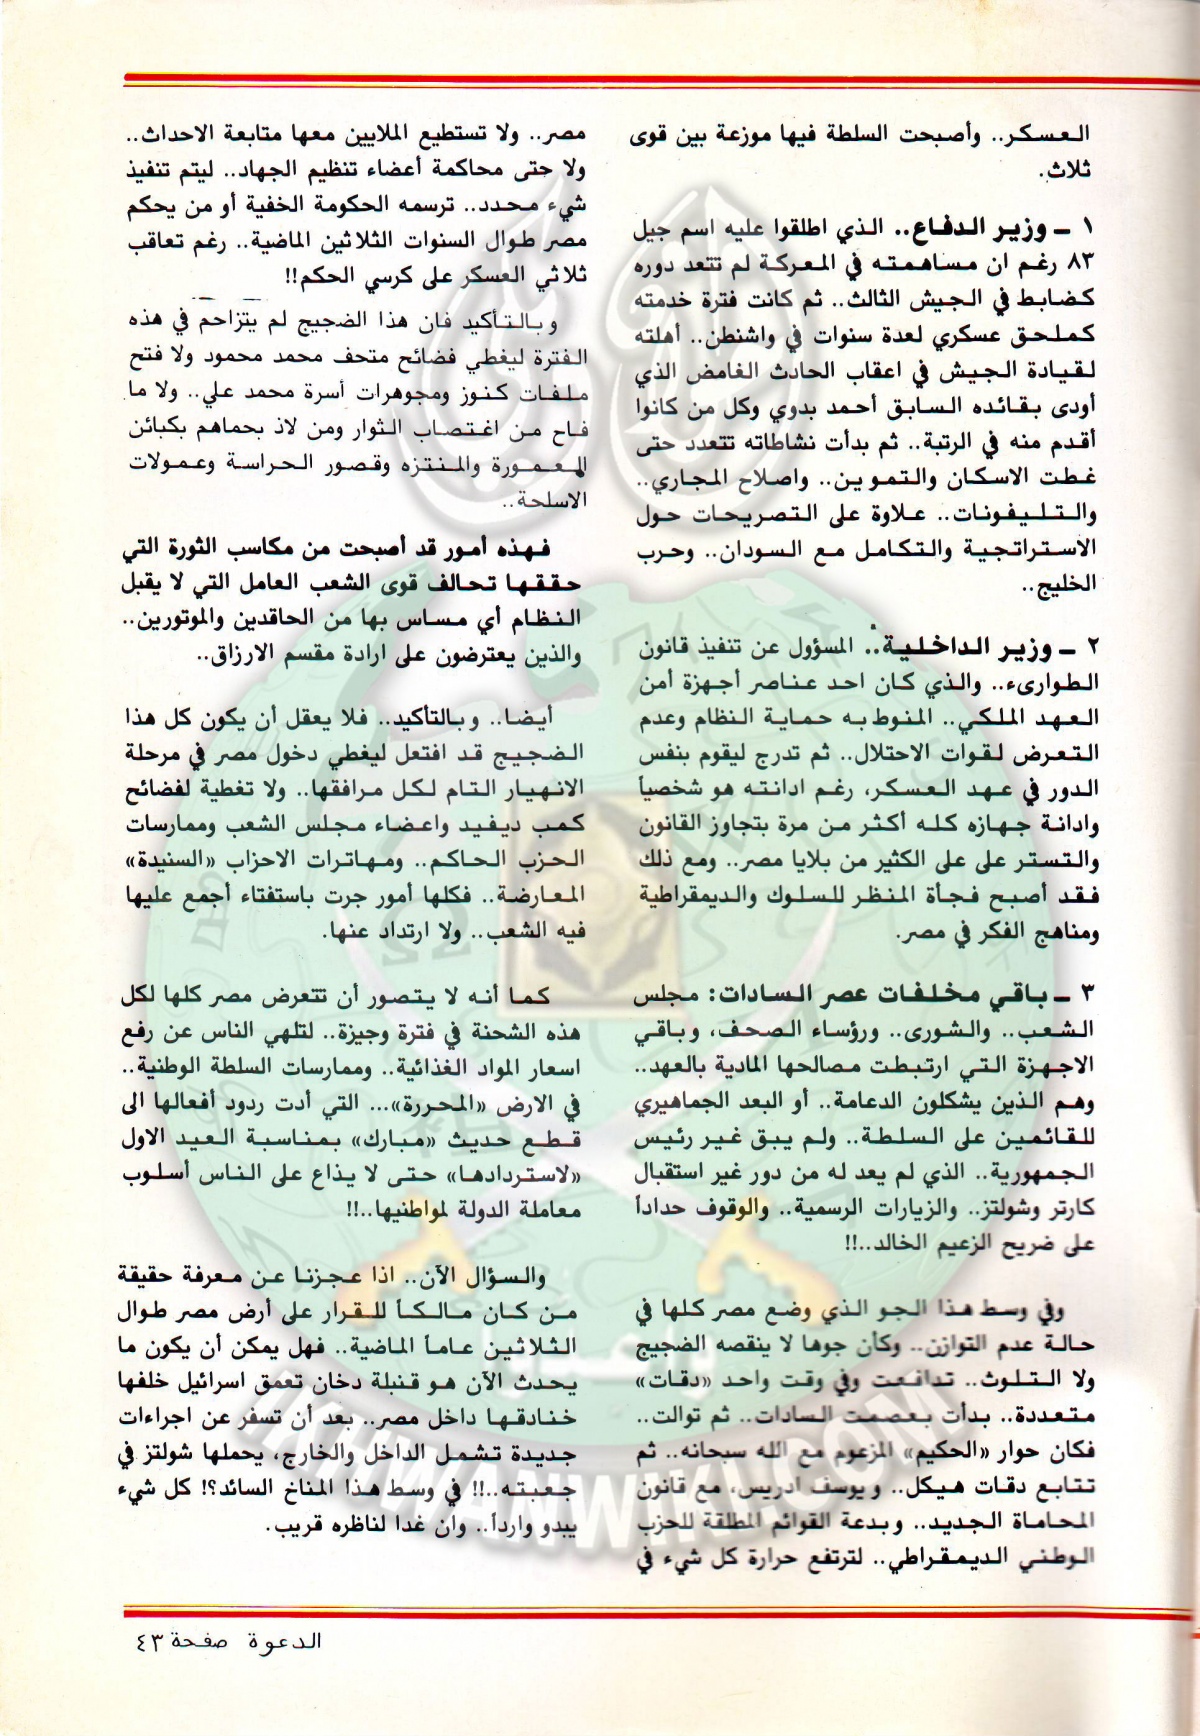 العسكر.. وأصبحت السلطة فيها موزعة بين قوى
ثلاث.
١ ـ وزير الدفاع.. الذي اطلقوا عليه اسم جيل
٨٣ رغم ان مساهمته في المعركة لم تتعد دوره
كضابط في الجيش الثالث.. ثم كانت فترة خدمته
كملحق عسكري لعدة سنوات في واشنطن.. أهلته
لقيادة الجيش في اعقاب الحادث الغامض الذي
أودى بقائده السابق أحمد بدوي وكل من كانوا
أقدم منه في الرتبة.. ثم بدأت نشاطاته تتعدد حتى
غطت الاسكان والتموين.. واصلاح المجاري..
والتليفونات.. علاوة على التصريحات حول
الاستراتجية والتكامل مع السودان.. وحرب
الخليج..
٢ ـ وزير الداخلية.. المسؤول عن تنفيذ قانون
الطوارىء.. والذي كان احد عناصر أجهزة أمن
العهد الملكي.. المنوط به حماية النظام وعدم
التعرض لقوات الاحتلال.. ثم تدرج ليقوم بنفس
الدور في عهد العسكر، رغم ادانته هو شخصياً
وادانة جهازه كله أكثر من مرة بتجاوز القانون
والتستر على على الكثير من بلايا مصر.. ومع ذلك
فقد أصبح فجأة المنظر للسلوك والديمقراطية
ومناهج الفكر في مصر.
٣ ـ باقي مخلفات عصر السادات: مجلس
الشعب.. والشورى.. ورؤساء الصحف، وباقي
الاجهزة التي ارتبطت مصالحها المادية بالعهد..
وهم الذين يشكلون الدعامة.. أو البعد الجماهيري
للقائمين على السلطة.. ولم يبق غير رئيس
الجمهورية.. الذي لم يعد له من دور غير استقبال
كارتر وشولتز.. والزيارات الرسمية.. والوقوف حداداً
على ضريح الزعيم الخالد..!!
وفي وسط هذا الجو الذي وضع مصر كلها في
حالة عدم التوازن.. وكأن جوها لا ينقصه الضجيج
ولا التلوث.. تدافعت وفي وقت واحد «دقات»
متعددة.. بدأت بعصمت السادات.. ثم توالت..
فكان حوار «الحكيم» المزعوم مع الله سبحانه.. ثم
تتابع دقات هيكل.. ويوسف ادريس، مع قانون
المحاماة الجديد.. وبدعة القوائم المطلقة للحزب
الوطني الديمقراطي.. لترتفع حرارة كل شيء في
مصر.. ولا تستطيع الملايين معها متابعة الاحداث..
ولا حتى محاكمة أعضاء تنظيم الجهاد.. ليتم تنفيذ
شيء محدد.. ترسمه الحكومة الخفية أو من يحكم
مصر طوال السنوات الثلاثين الماضية.. رغم تعاقب
ثلاثي العسكر على كرسي الحكم!!
وبالتأكيد فان هذا الضجيج لم يتزاحم في هذه
الفترة ليغطي فضائح متحف محمد محمود ولا فتح
ملفات كنوز ومجوهرات أسرة محمد علي.. ولا ما
فاح من اغتصاب الثوار ومن لاذ بحماهم بكبائن
المعمورة والمنتزه وقصور الحراسة وعمولات
الاسلحة..
فهذه أمور قد أصبحت من مكاسب الثورة التي
حققها تحالف قوى الشعب العامل التي لا يقبل
النظام أي مساس بها من الحاقدين والموتورين..
والذين يعترضون على ارادة مقسم الارزاق..
أيضا.. وبالتأكيد.. فلا يعقل أن يكون كل هذا
الضجيج قد افتعل ليغطي دخول مصر في مرحلة
الانهيار التام لكل مرافقها.. ولا تغطية لفضائح
كمب ديفيد واعضاء مجلس الشعب وممارسات
الحزب الحاكم.. ومهاترات الاحزاب «السنيدة»
المعارضة.. فكلها أمور جرت باستفتاء أجمع عليها
فيه الشعب.. ولا ارتداد عنها.
كما أنه لا يتصور أن تتعرض مصر كلها لكل
هذه الشحنة في فترة وجيزة.. لتلهي الناس عن رفع
اسعار المواد الغذائية.. وممارسات السلطة الوطنية..
في الارض «المحررة»... التي أدت ردود أفعالها الى
قطع حديث «مبارك» بمناسبة العيد الاول
«لاستردادها» حتى لا يذاع على الناس أسلوب
معاملة الدولة لمواطنيها..!!
والسؤال الآن.. اذا عجزنا عن معرفة حقيقة
من كان مالكاً للقرار على أرض مصر طوال
الثلاثين عاماً الماضية.. فهل يمكن أن يكون ما
يحدث الآن هو قنبلة دخان تعمق اسرائيل خلفها
خنادقها داخل مصر.. بعد أن تسفر عن اجراءات
جديدة تشمل الداخل والخارج، يحملها شولتز في
جعبته..!! في وسط هذا المناخ السائد؟! كل شيء
يبدو وارداً.. وان غدا لناظره قريب.
IKHWANWIKI.COM
الدعوة صفحة ٤٣